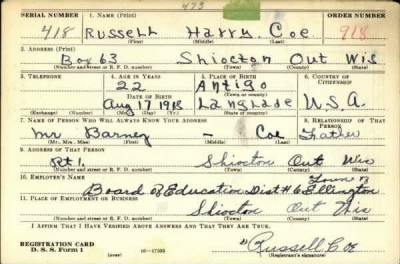 473
SERIAL NUMBER 1. Name (Print) ORDER NUMBER
418 Russell Harry. Coe 918
(First) (Middle) (Last)
2. Address (Print)
Box 63 Shiocton Out Wis
(Number and street or R. F. D. number) (Town) (County) (State)
3. Telephone 4. Age in Years 5. Place of Birth 6. Country of Citizenship
22 Antigo
Date of Birth (Town or county)
Aug 17 1918 Langlade U.S.A.
(Exchange) (Number) (Mo.) (Day) (Yr.) (State or country)
7. Name of Person Who Will Always Know Your Address 8. Relationship of That Person
Mr Barney - Coe Father
(Mr., Mrs., Miss) (First) (Middle) (Last)
9. Address of That Person
Rt 1. Shiocton Out Wis
(Number and street or R. F. D. number) (Town) (County) (State)
10. Employer's Name Town of
Board of Education Dist #6 Ellington
11. Place of Employment or Business
Shiocton Out Wis
(Number and street or R. F. D. number) (Town) (County) (State)
I Affirm That I Have Verified Above Answers and That They Are True.
REGISTRATION CARD
D. S. S. Form 1 (over) 16-17105 Russell Coe
(Registrant's signature)